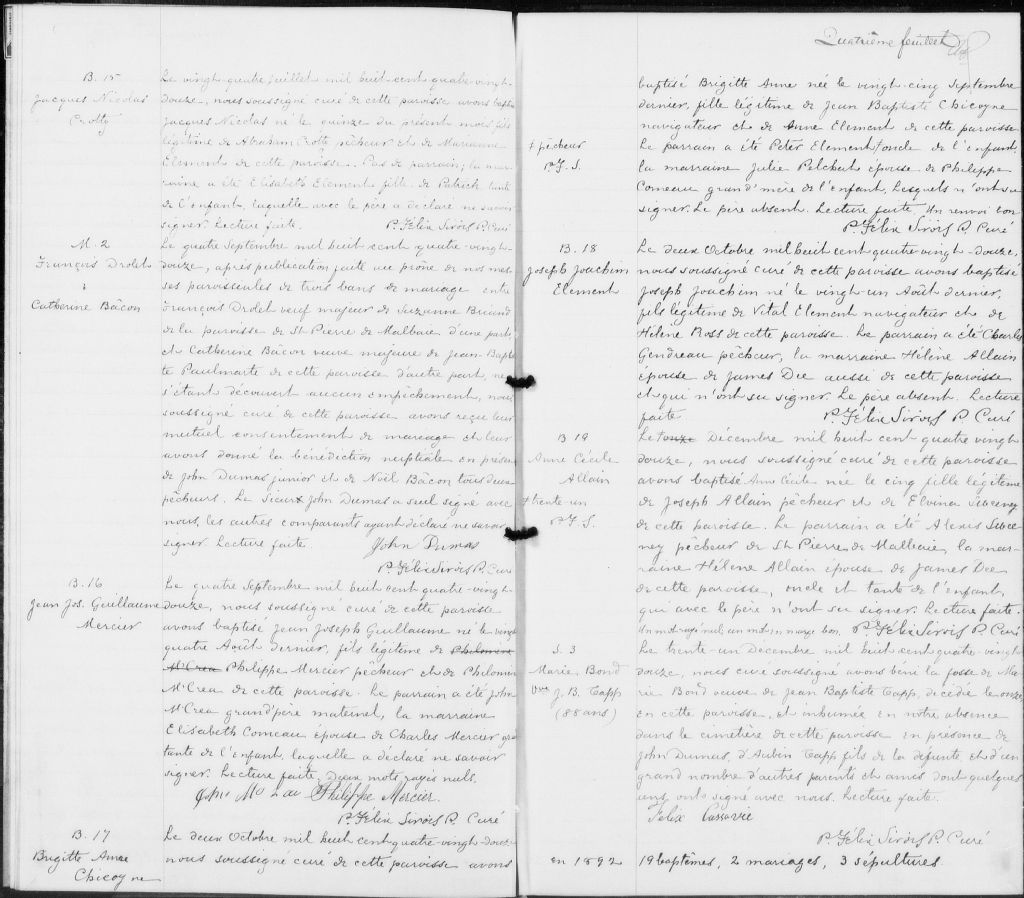 B. 15
Jacques Nicolas
Crotty
Le vingt-quatre juillet mil huit-cent quatre-vingt-
douze, nous soussigné curé de cette paroisse avons baptisé
Jacques Nicolas né le quinze du présent mois, fils
légitime de Abraham Crotty pêcheur et de Marianne
Element de cette paroisse. Pas de parrain, la mar-
raine a été Elisabeth Element fille de Patrick tante
de l'enfant, laquelle avec le père a déclaré ne savoir
signer. Lecture faite. P. Félix Sirois P. Curé
M. 2
François Drolet
&
Catherine Bâcon
Le quatre Septembre mil huit cent quatre-vingt-
douze, après publication faite au prône de nos mes-
ses paroissiales de trois bans de mariage entre
François Drolet veuf majeur de Suzanne Briand
de la paroisse de St Pierre de Malbaie d'une part,
et Catherine Bâcon veuve majeure de Jean-Baptis-
te Paulmarte de cette paroisse d'autre part, ne
s'étant découvert aucun empêchement, nous
soussigné curé de cette paroisse avons reçu leur
mutuel consentement de mariage et leur
avons donné la bénédiction nuptiale en présence
de John Dumas junior et de Noël Bâcon tous deux
pêcheurs. Le Sieur John Dumas a seul signé avec
nous, les autres comparants ayant déclaré ne savoir
signer. Lecture faite. John Dumas
P. Félix Sirois P. Curé
B. 16
Jean Jos. Guillaume
Mercier
Le quatre Septembre mil huit cent quatre-vingt-
douze, nous soussigné curé de cette paroisse
avons baptisé Jean Joseph Guillaume né le vingt
quatre Août dernier, fils légitime de Philomène
McCrea Philippe Mercier pêcheur et de Philomène
McCrea de cette paroisse. Le parrain a été John
McCrea grand'père maternel, la marraine
Elisabeth Comeau épouse de Charles Mercier gra
tante de l'enfant, laquelle a déclaré ne savoir
signer. Lecture faite. Deux mots rayés nuls.
John Philippe Mercier.
P. Félix Sirois P. Curé
B. 17
Brigitte Anne
Chicoyne
Le deux Octobre mil huit cent-quatre-vingt-douze
nous soussigné curé de cette paroisse avons
Quatrième feuillet
baptisé Brigitte Anne née le vingt-cinq Septembre
dernier, fille légitime de Jean Baptiste Chicoyne
navigateur et de Anne Element de cette paroisse.
+ pêcheur
P. F. S.
Le parrain a été Peter Element + oncle de l'enfant,
la marraine Julie Pelchat épouse de Philippe
Comeau grand'mère de l'enfant, lesquels n'ont su
signer. Le père absent. Lecture faite. Un renvoi bon
P. Félix Sirois P. Curé
B. 18
Joseph Joachim
Element
Le deux Octobre mil huit cent-quatre-vingt-douze,
nous soussigné curé de cette paroisse avons baptisé
Joseph Joachim né le vingt-un Août dernier,
fils légitime de Vital Element navigateur et de
Hélène Ross de cette paroisse. Le parrain a été Charles
Gendreau pêcheur, la marraine Hélène Allain
épouse de James Dee aussi de cette paroisse
et qui n'ont su signer. Le père absent. Lecture
faite. P. Félix Sirois P. Curé
B 19
Anne Cécile
Allain
+ trente-un
P. F. S.
Le onze Décembre mil huit cent quatre vingt
douze, nous soussigné curé de cette paroisse
avons baptisé Anne Cécile née le cinq fille légitime
de Joseph Allain pêcheur et de Elvina Sweeney
de cette paroisse. Le parrain a été Alexis Swee
ney pêcheur de St Pierre de Malbaie, la mar-
raine Hélène Allain épouse de James Dee
de cette paroisse, oncle et tante de l'enfant,
qui avec le père n'ont su signer. Lecture faite.
Un mot rayé nul, un mot en marge bon. P. Félix Sirois P. Curé
S. 3
Marie Bond
Vve J. B. Tapp
(88 ans)
Le trente-un Décembre mil huit cent quatre-vingt
douze, nous curé soussigné avons béni la fosse de Ma-
rie Bond veuve de Jean Baptiste Tapp, décédée le onze,
en cette paroisse, et inhumée en notre absence
dans le cimetière de cette paroisse en présence de
John Dumas, d'Aubin Tapp fils de la défunte et d'un
grand nombre d'autres parents et amis dont quelques
uns ont signé avec nous. Lecture faite.
Felix
P. Félix Sirois P. Curé
en 1892 19 baptêmes, 2 mariages, 3 sépultures